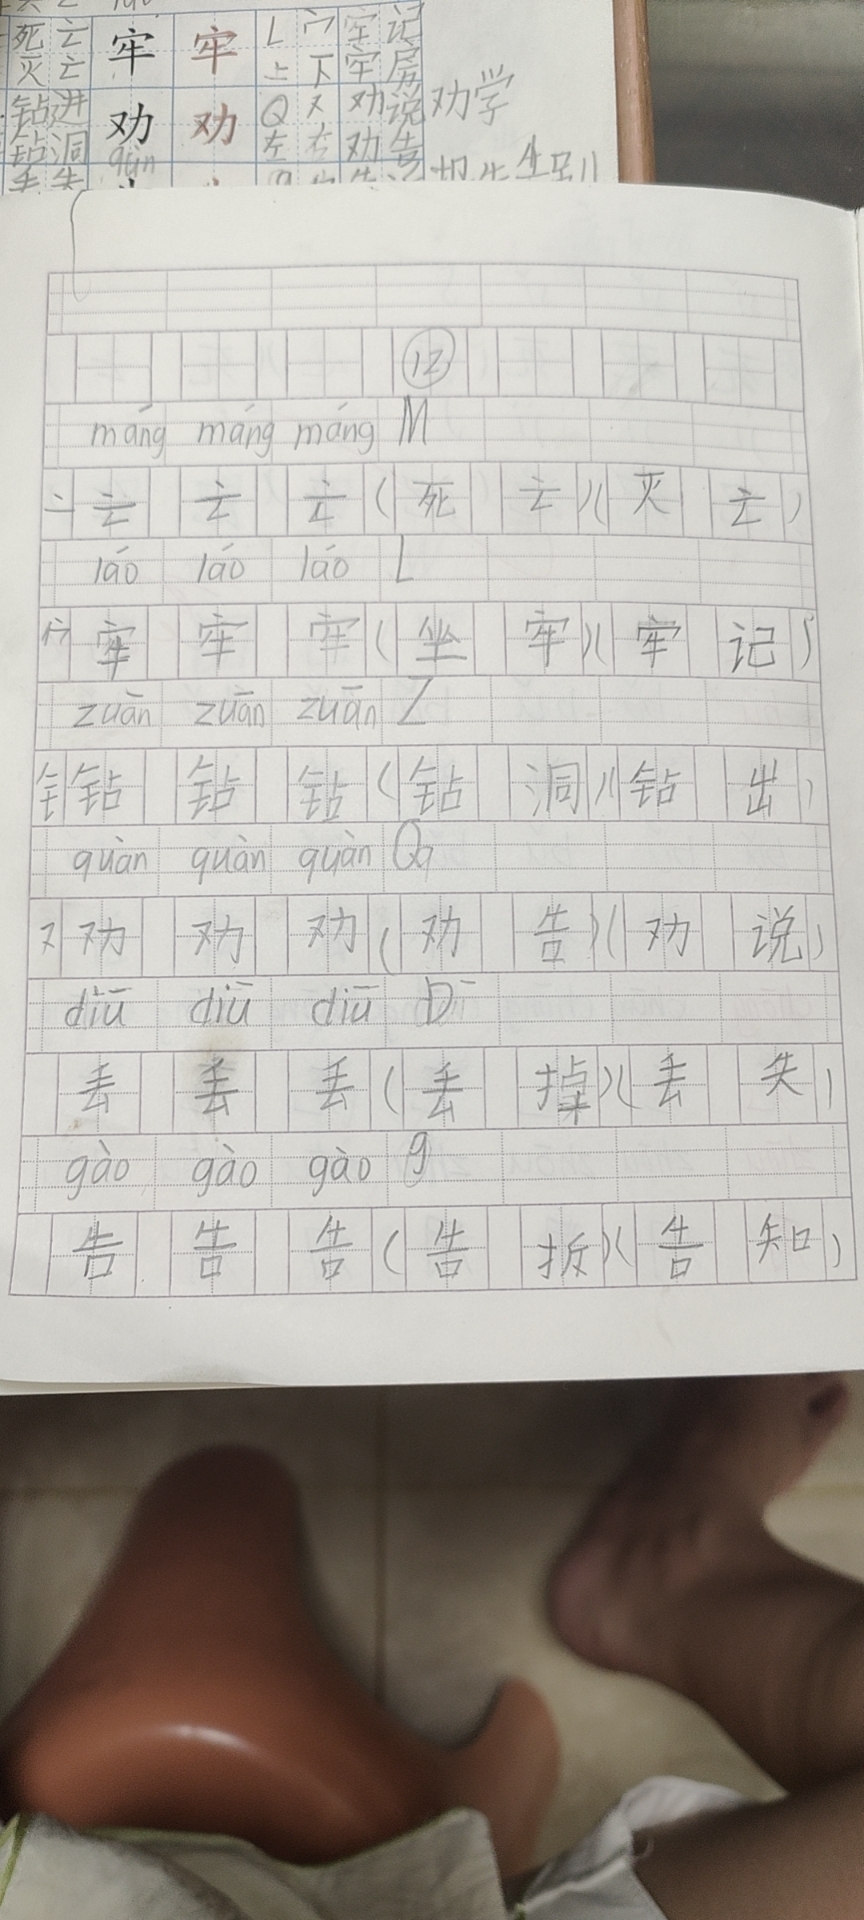 死亡 牢 牢 L 宀 牢记
灭亡 上 下 牢房
钻进 劝 劝 Q 又 劝说 劝学
钻洞 左 右 劝告
qún
12
máng máng máng M
亠 亡 亡 亡 (死亡)(灭亡)
láo láo láo L
宀 牢 牢 牢 (坐牢)(牢记)
zuān zuān zuān Z
钅 钻 钻 钻 (钻洞)(钻出)
quàn quàn quàn Qq
又 劝 劝 劝 (劝告)(劝说)
diū diū diū D
丢 丢 丢 (丢掉)(丢失)
gào gào gào g
告 告 告 (告 )(告知)